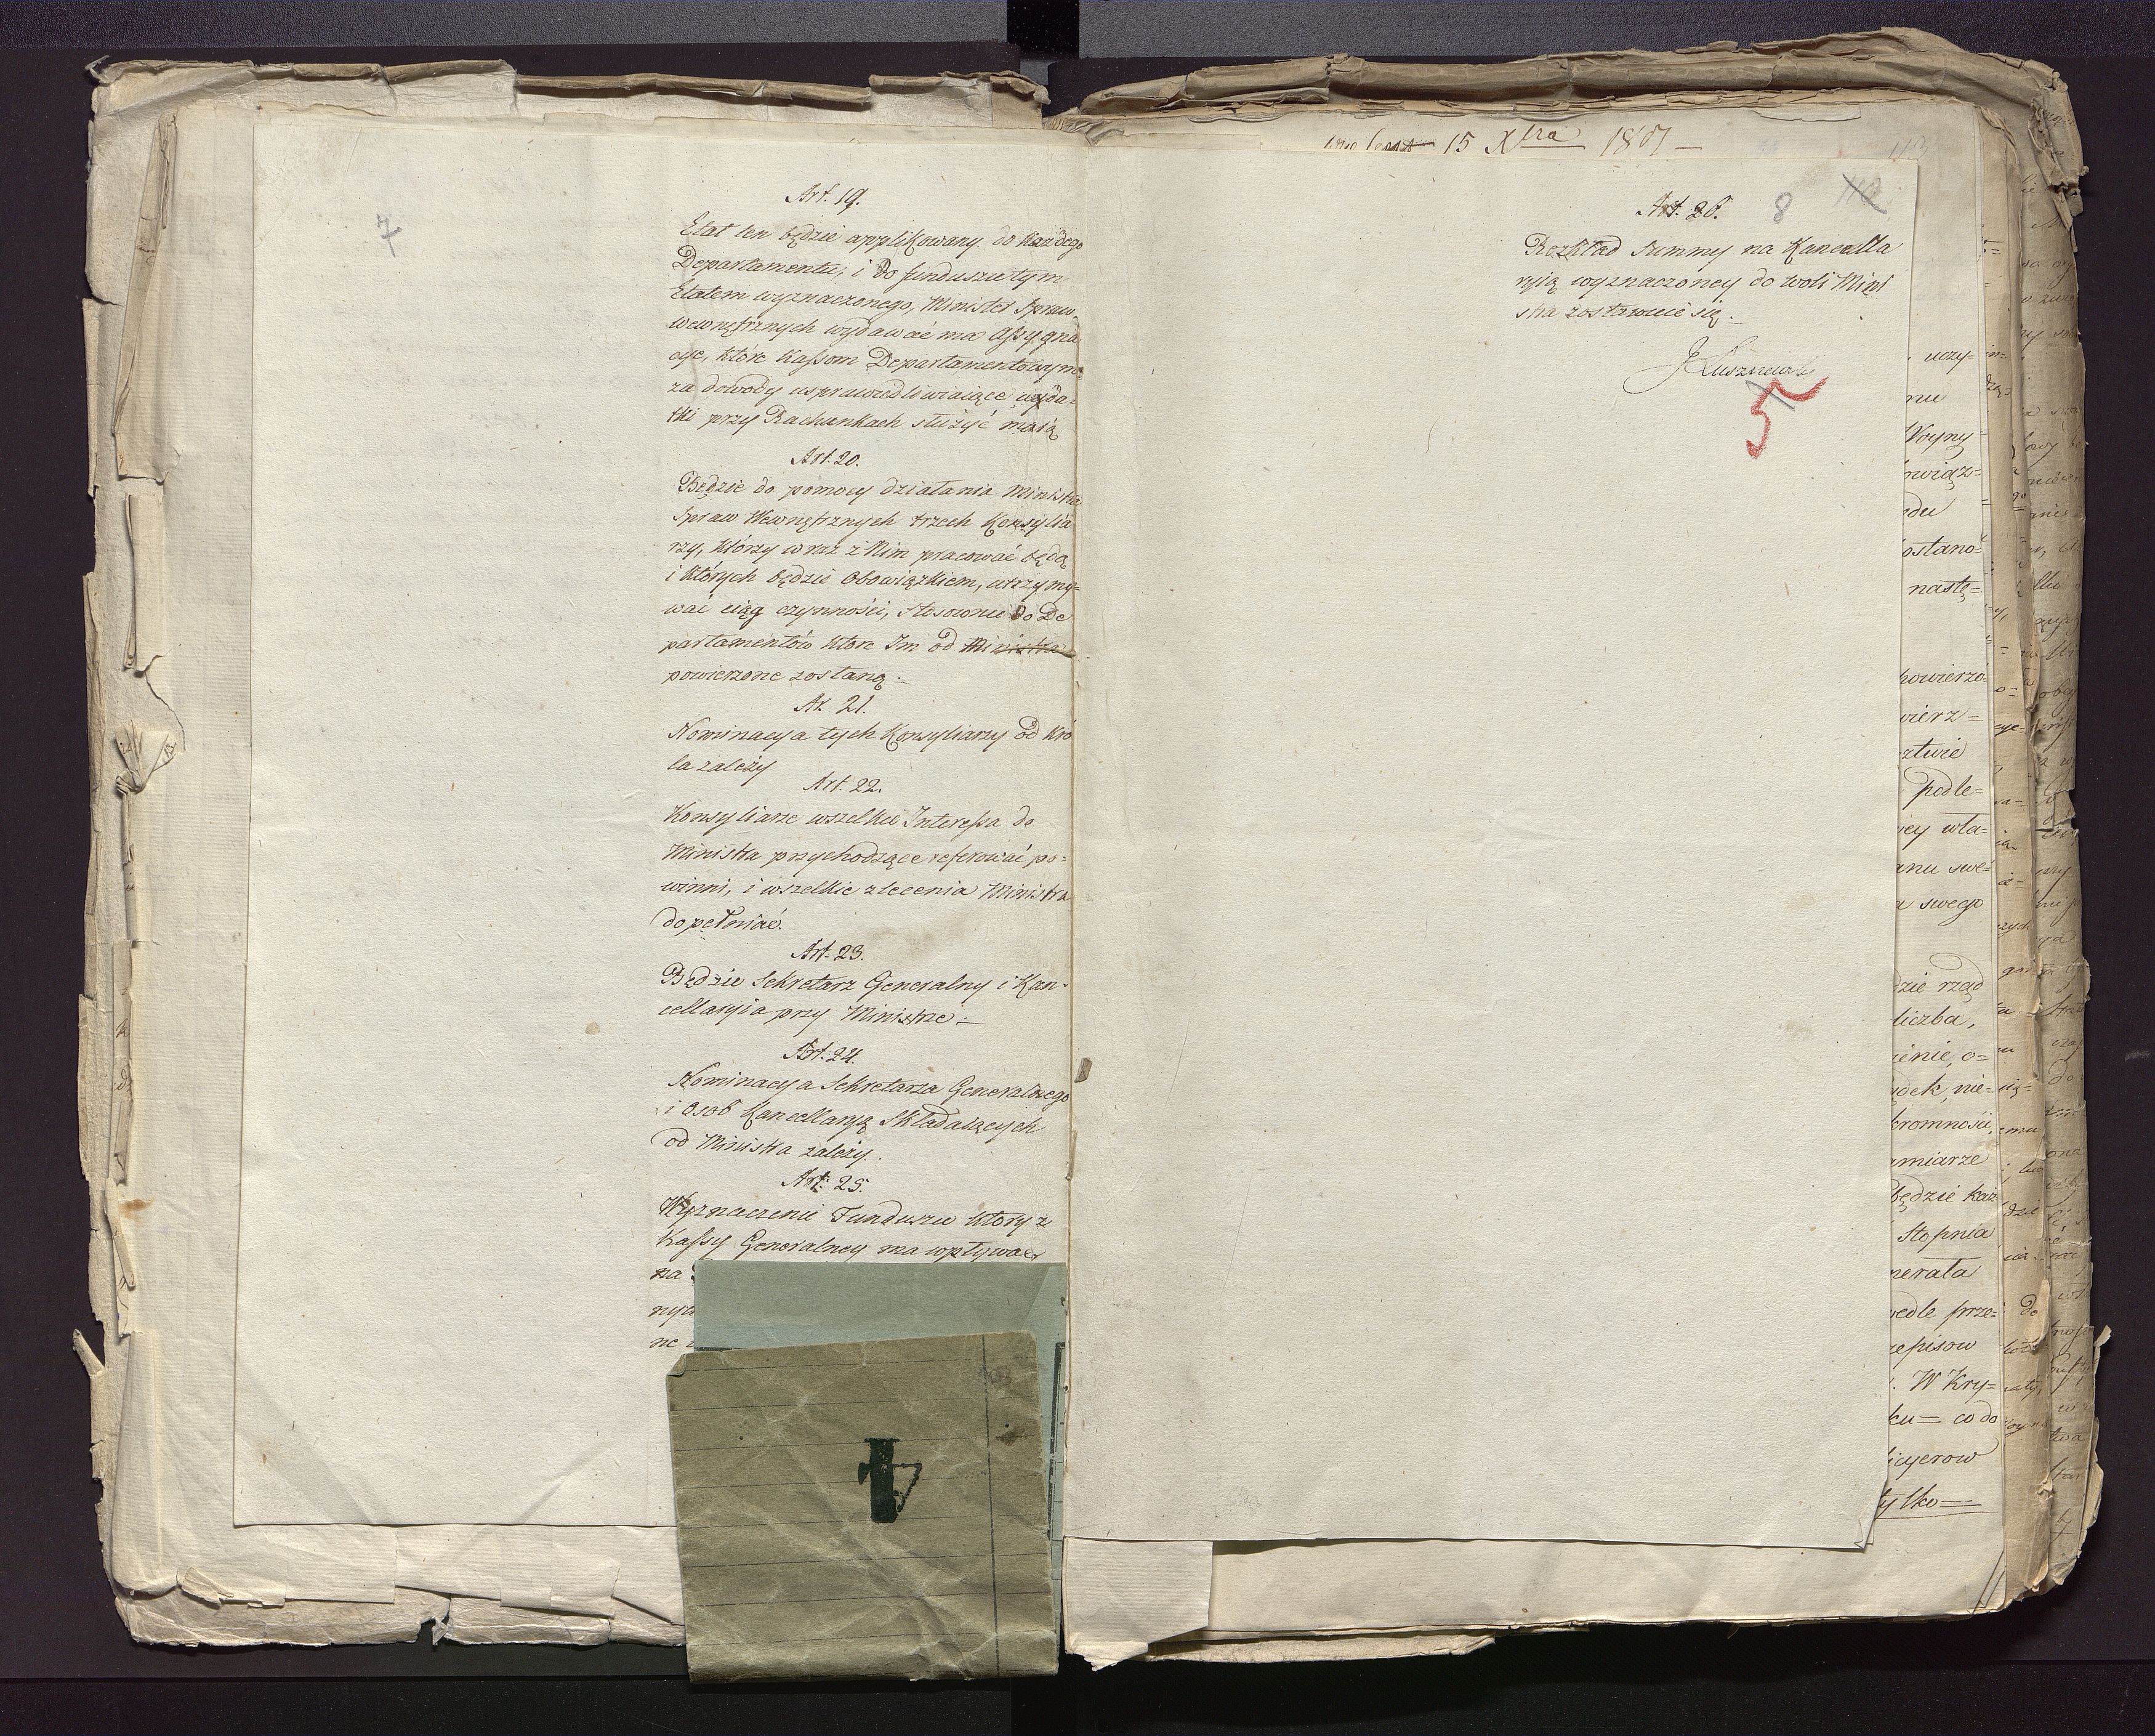 7
Art. 19.
Etat ten będzie applikowany do każdego
Departamentu, i do funduszu tym
Etatem wyznaczonego, Minister Spraw
wewnętrznych wydawać ma Assygna
cye, które Kassom Departamentowym
za dowody usprawiedliwiaiące wyda=
tki przy Rachunkach służyć maią
Art. 20.
Będzie do pomocy działania Ministra
Spraw Wewnętrznych trzech Konsylia
rzy, którzy wraz z Nim pracować będą
i których będzie Obowiązkiem, utrzymy=
wać ciąg czynności, stosownie do De
partamentów które Im od Ministra
powierzone zostaną.=
Ar. 21.
Nominacya tych Konsyliarzy od Kró
la zależy
Art. 22.
Konsyliarze wszelkie Interessa do
Ministra przychodzące referować po=
winni, i wszelkie zlecenia Ministra
dopełniać.
Art. 23.
Będzie Sekretarz Generalny i Kan=
cellaryia przy Ministrze.=
Art. 24.
Nominacya Sekretarza Generalnego
i Osob Kancellaryą Składaiących
od Ministra zależy.
Art. 25.
Wyznaczenie Funduszu który z
Kassy Generalney ma wpływać
na
ne
4
15 Xbra 1807 —
113
Art. 26.
8
112
Rozkład Summy na Kancella
ryią wyznaczoney do woli Mini
stra zostawuie się.=
5
uczy=
nu
Woyny=
owiąz=
du
ostano=
nastę=
powierzo=
wierz=
ztwie
podle=
iey wła=
anu swe=
a swego
dzie rząd
liczba,
ienie, o=
dek, nie=
kromności,
amiarze
będzie każ
Stopnia
nerała
wedle prze=
zepisow
. W Kry=
ku = co do
icyerow
tylko =